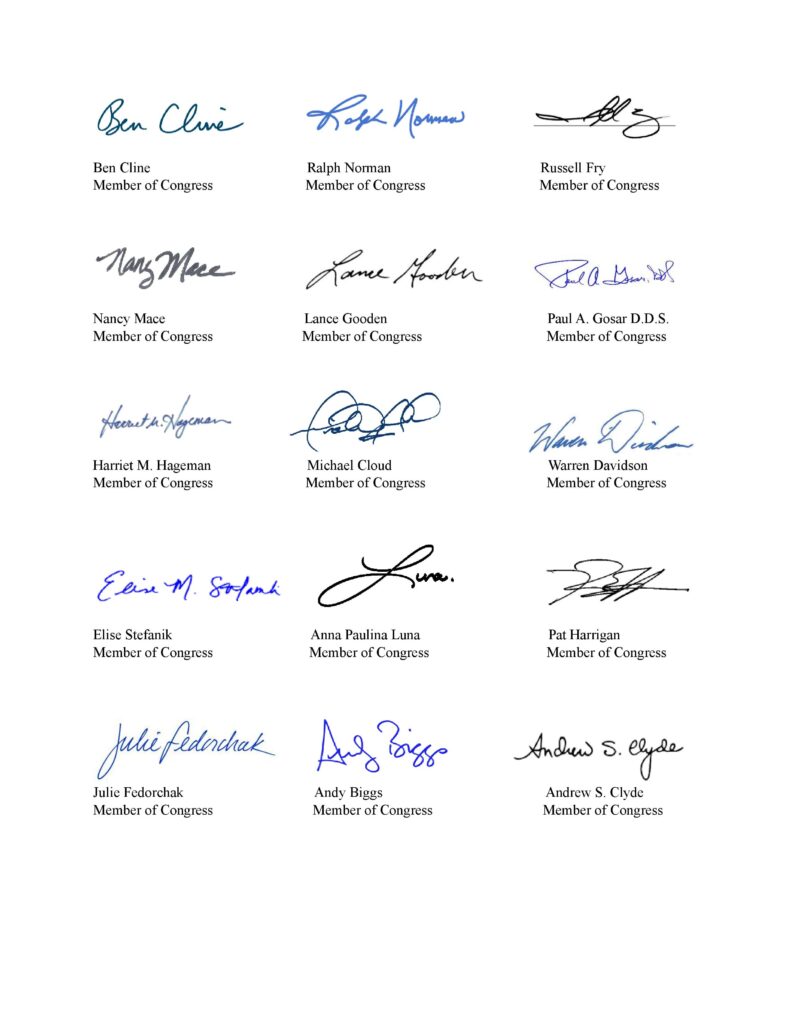 Ben Cline Ralph Norman
Ben Cline Ralph Norman Russell Fry
Member of Congress Member of Congress Member of Congress
Nancy Mace Lance Gooden Paul A. Gosar, DDS
Nancy Mace Lance Gooden Paul A. Gosar D.D.S.
Member of Congress Member of Congress Member of Congress
Harriet M. Hageman Warren Davidson
Harriet M. Hageman Michael Cloud Warren Davidson
Member of Congress Member of Congress Member of Congress
Elise M. Stefanik Luna.
Elise Stefanik Anna Paulina Luna Pat Harrigan
Member of Congress Member of Congress Member of Congress
Julie Fedorchak Andy Biggs Andrew S. Clyde
Julie Fedorchak Andy Biggs Andrew S. Clyde
Member of Congress Member of Congress Member of Congress